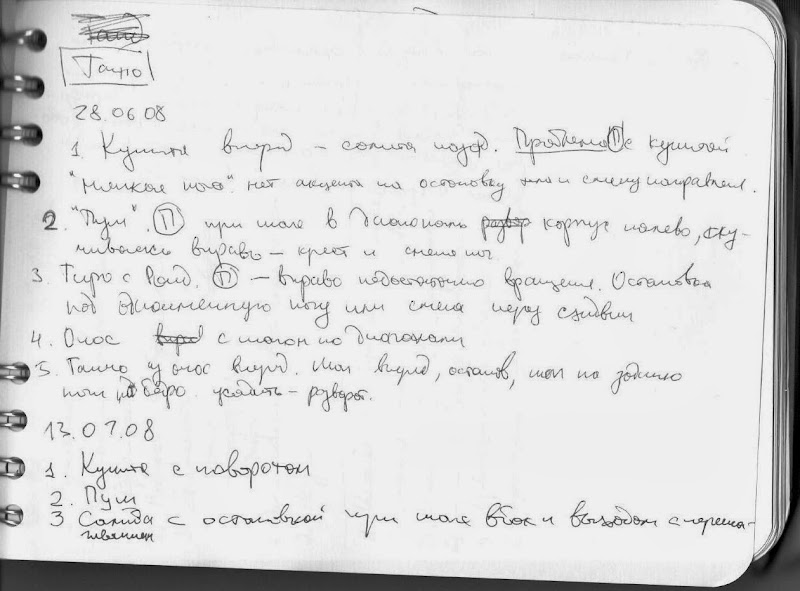 Танго
28.06.08
1. Кунита вперд – солита назад. Проблема П с кунитой
"мягкая нога". нет акцента на остановку или и смену направлен.
2. "Пум". П при шаге в диагональ корпус налево, ску-
чиваюсь вправо – крест и смена ног
3. Гиро с П – вправо недостаточно вращения. Остановка
под одноименную ногу или смена через
4. Очос с шагом по диагонали
5. Танго очос вперд. Шаг вперд, останов, шаг на заднюю
ногу бедро. усадить – разворот.
13.07.08
1. Кунита с поворотом
2. Пум
3 Салида с остановкой при шаге вбок и выходом с переша-
гиванием